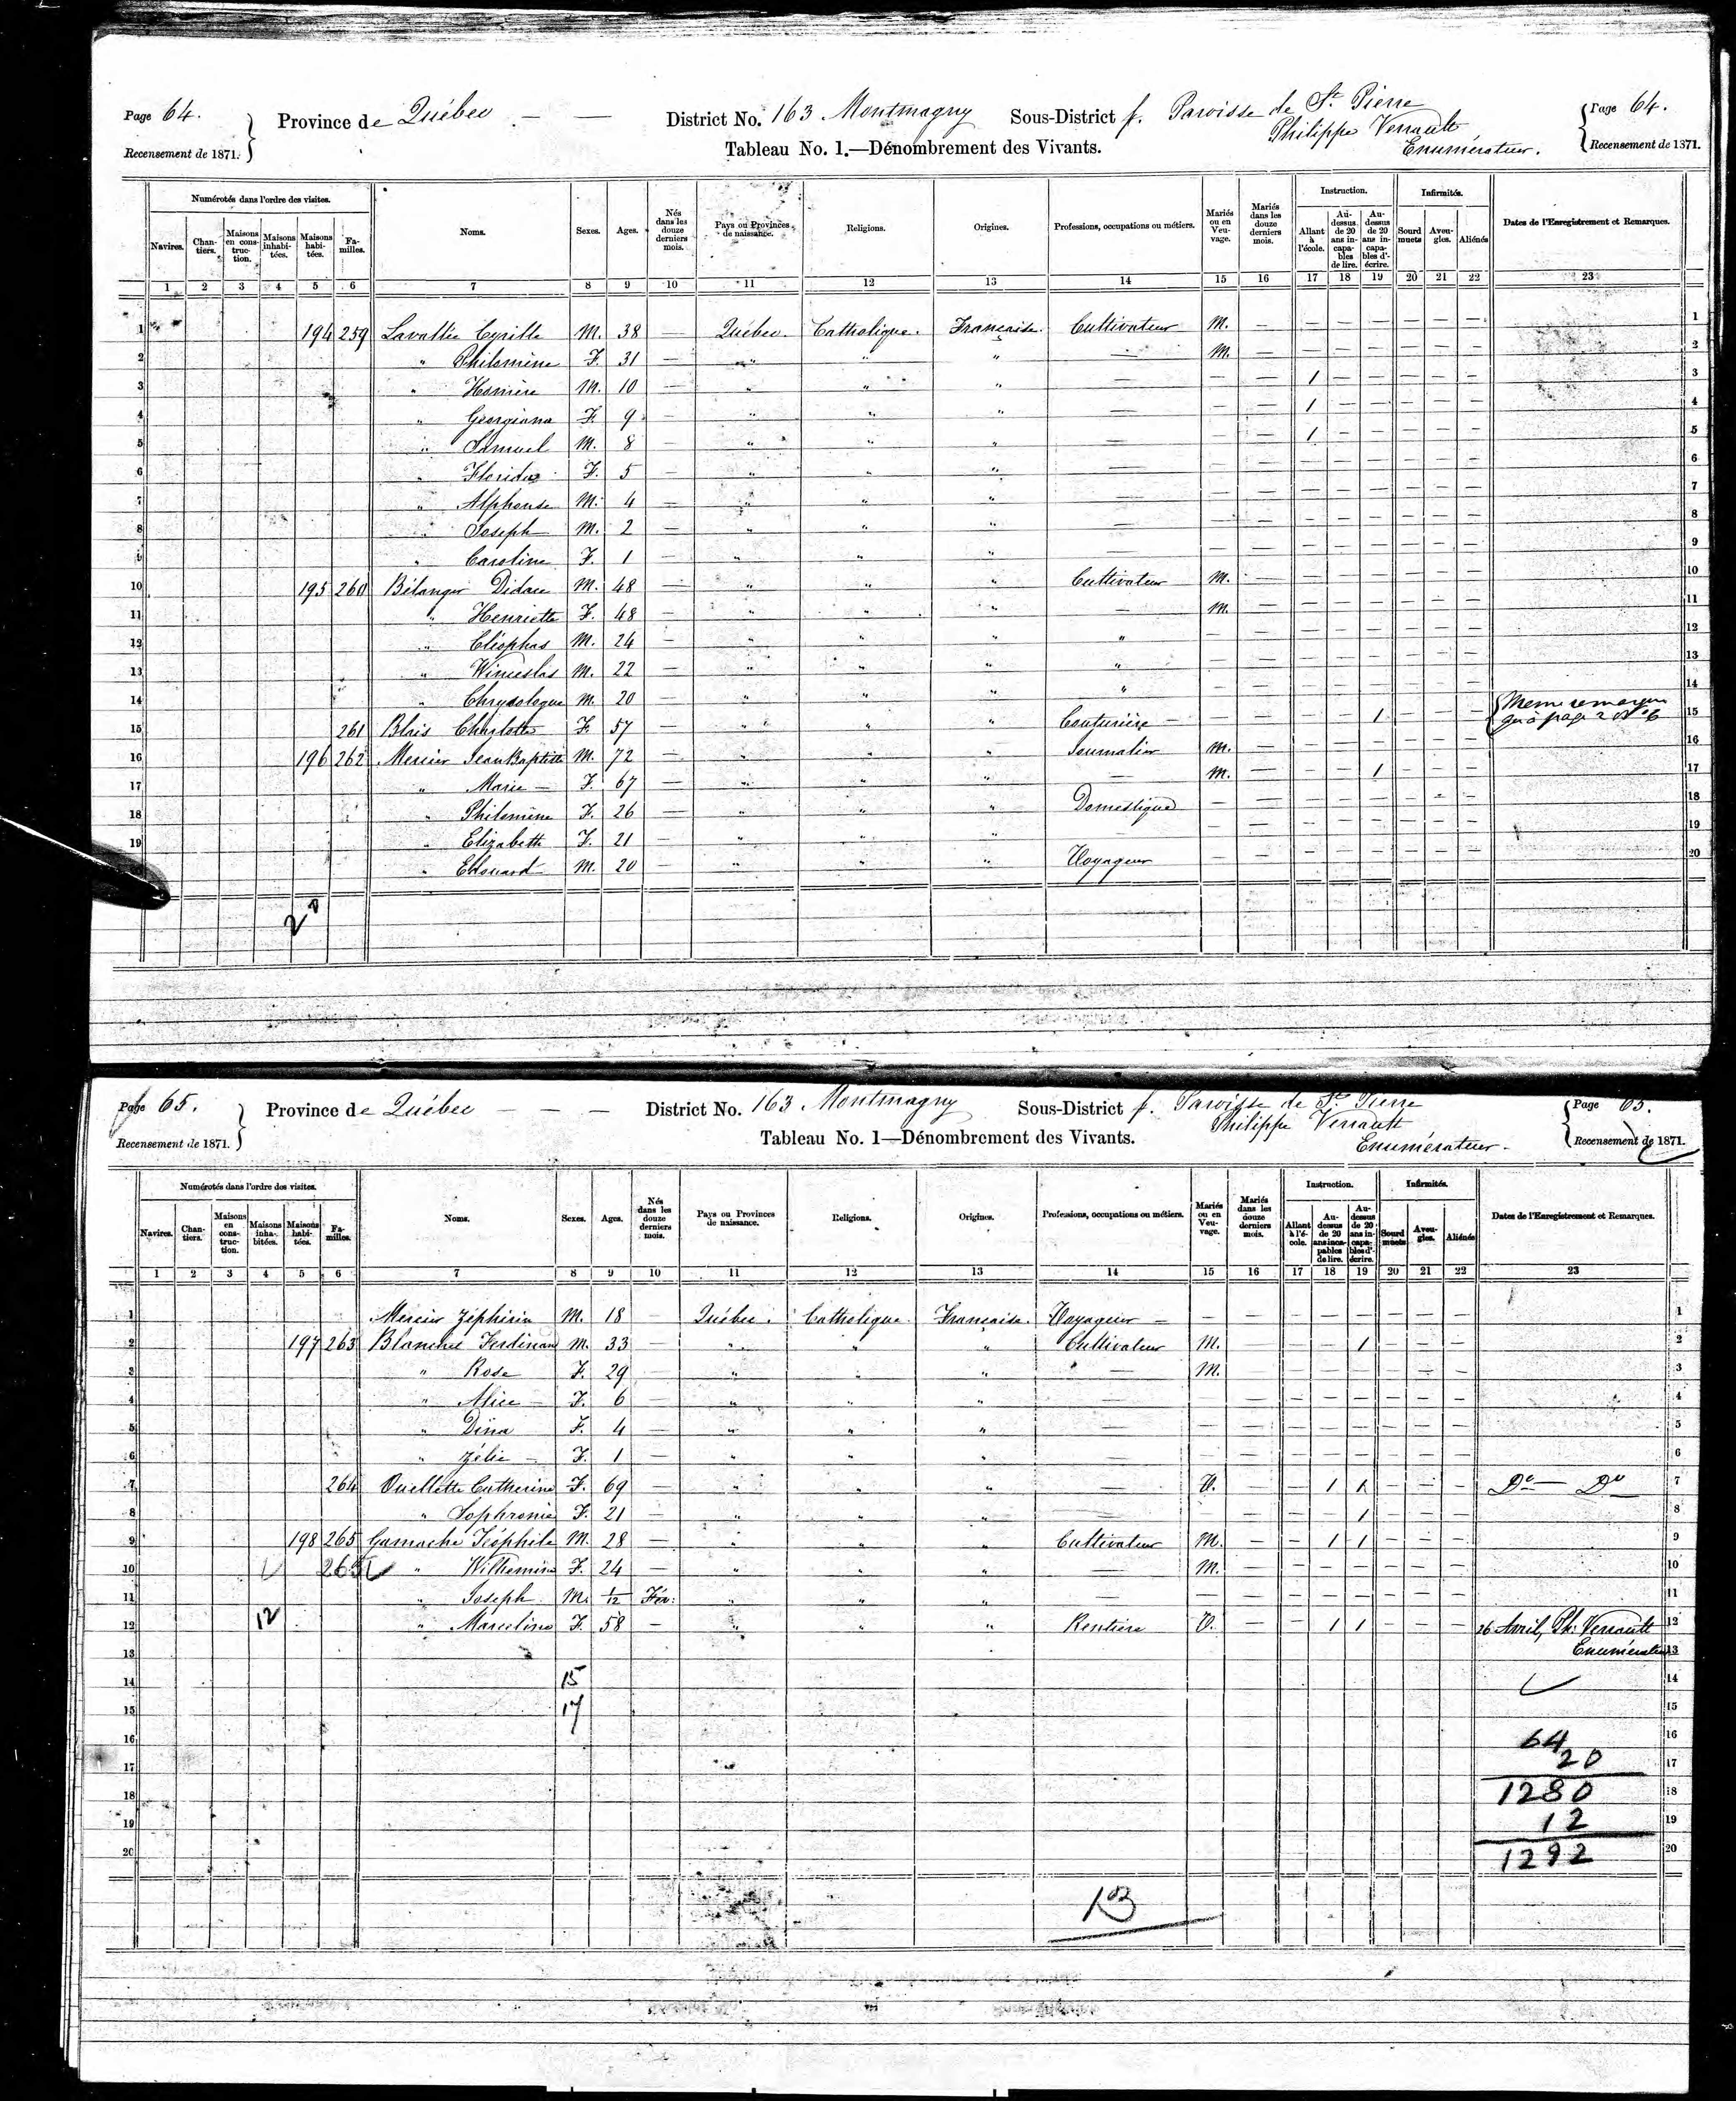 Page 64. Province de Québec — — District No. 163 Montmagny Sous-District f. Paroisse de St. Pierre Page 64.
Philippe Verrault
Recensement de 1871. Tableau No. 1.—Dénombrement des Vivants. Enumérateur. Recensement de 1871.
Numérotés dans l'ordre des visites. Instruction. Infirmités.
Navires. Chantiers. Maisons en construction. Maisons inhabitées. Maisons habitées. Familles. Noms. Sexes. Ages. Nés dans les douze derniers mois. Pays ou Provinces de naissance. Religions. Origines. Professions, occupations ou métiers. Mariés ou en Veuvage. Mariés dans les douze derniers mois. Allant à l'école. Au-dessus de 20 ans incapables de lire. Au-dessus de 20 ans incapables d'écrire. Sourd muets Aveugles. Aliénés Dates de l'Enregistrement et Remarques.
1 2 3 4 5 6 7 8 9 10 11 12 13 14 15 16 17 18 19 20 21 22 23
1 194 259 Lavallée Cyrille M. 38 — Québec. Catholique. Française. Cultivateur M. — — — — — — — 1
2 " Philomène F. 31 — " " " — M. — — — — — — — 2
3 " Homère M. 10 — " " " — — — 1 — — — — — 3
4 " Georgiana F. 9 — " " " — — — 1 — — — — — 4
5 " Samuel M. 8 — " " " — — — 1 — — — — — 5
6 " Florida F. 5 — " " " — — — — — — — — — 6
7 " Alphonse M. 4 — " " " — — — — — — — — — 7
8 " Joseph M. 2 — " " " — — — — — — — — — 8
9 " Caroline F. 1 — " " " — — — — — — — — — 9
10 195 260 Bélanger Didace M. 48 — " " " Cultivateur M. — — — — — — — 10
11 " Henriette F. 48 — " " " — M. — — — — — — — 11
12 " Cléophas M. 24 — " " " " — — — — — — — — 12
13 " Winceslas M. 22 — " " " " — — — — — — — — 13
14 " Chrysologue M. 20 — " " " " — — — — — — — — 14
15 261 Blais Charlotte F. 57 — " " " Couturière — — — — — 1 — — — Meme remarque qu'à page 2 15
16 196 262 Mercier Jean Baptiste M. 72 — " " " Journalier M. — — — — — — — 16
17 " Marie — F. 67 — " " " — M. — — — 1 — — — 17
18 " Philomène F. 26 — " " " Domestique — — — — — — — — 18
19 " Elizabeth F. 21 — " " " — — — — — — — — — 19
" Edouard M. 20 — " " " Voyageur — — — — — — — — 20
20
Page 65. Province de Québec — — — District No. 163 Montmagny Sous-District f. Paroisse de St. Pierre Page 65.
Philippe Verrault
Recensement de 1871. Tableau No. 1—Dénombrement des Vivants. Enumérateur. Recensement de 1871.
Numérotés dans l'ordre des visites. Instruction. Infirmités.
Navires. Chantiers. Maisons en construction. Maisons inhabitées. Maisons habitées. Familles. Noms. Sexes. Ages. Nés dans les douze derniers mois. Pays ou Provinces de naissance. Religions. Origines. Professions, occupations ou métiers. Mariés ou en Veuvage. Mariés dans les douze derniers mois. Allant à l'école. Au-dessus de 20 ans incapables de lire. Au-dessus de 20 ans incapables d'écrire. Sourd muets Aveugles. Aliénés Dates de l'Enregistrement et Remarques.
1 2 3 4 5 6 7 8 9 10 11 12 13 14 15 16 17 18 19 20 21 22 23
1 Mercier Zéphirin M. 18 — Québec. Catholique. Française. Voyageur — — — — — — — — — 1
2 197 263 Blanchet Ferdinand M. 33 — " " " Cultivateur M. — — — 1 — — — 2
3 " Rose F. 29 — " " " — M. — — — — — — — 3
4 " Alice — F. 6 — " " " — — — — — — — — — 4
5 " Dina F. 4 — " " " — — — — — — — — — 5
6 " Zélie — F. 1 — " " " — — — — — — — — — 6
7 264 Ouellette Catherine F. 69 — " " " — V. — — 1 1 — — — Do — Do 7
8 " Sophronie F. 21 — " " " — — — — — 1 — — — 8
9 198 265 Gamache Téophile M. 28 — " " " Cultivateur M. — — 1 1 — — — 9
10 265 " Wilhemine F. 24 — " " " — M. — — — — — — — 10
11 " Joseph M. 1/12 Fév: " " " — — — — — — — — — 11
12 12 " Marceline F. 58 — " " " Rentière V. — — 1 1 — — — 26 Avril, Ph: Verrault 12
13 Enumérateur 13
14 15 14
15 17 15
16 64 16
17 20 17
18 1280 18
19 12 19
20 1292 20
13